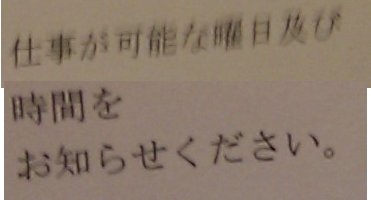 仕事が可能な曜日及び
時間を
お知らせください。